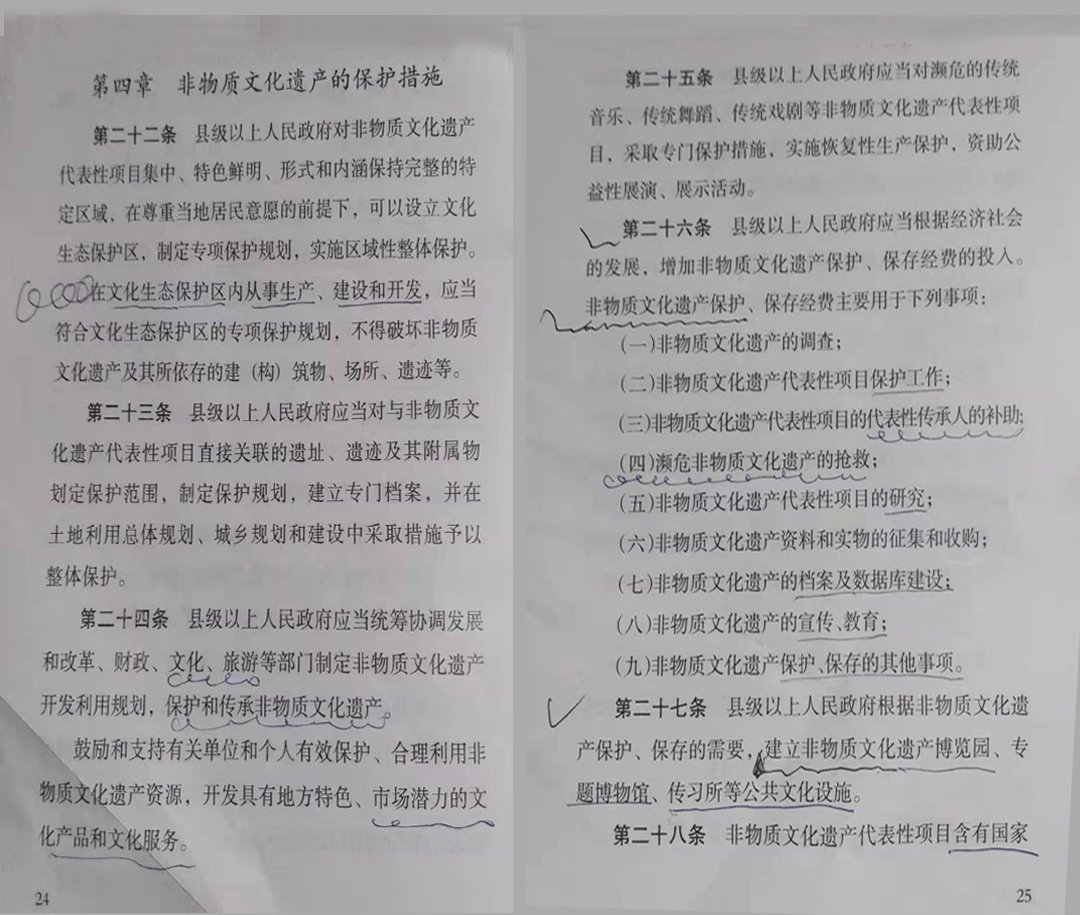 第四章 非物质文化遗产的保护措施
第二十二条 县级以上人民政府对非物质文化遗产
代表性项目集中、特色鲜明、形式和内涵保持完整的特
定区域，在尊重当地居民意愿的前提下，可以设立文化
生态保护区，制定专项保护规划，实施区域性整体保护。
在文化生态保护区内从事生产、建设和开发，应当
符合文化生态保护区的专项保护规划，不得破坏非物质
文化遗产及其所依存的建（构）筑物、场所、遗迹等。
第二十三条 县级以上人民政府应当对与非物质文
化遗产代表性项目直接关联的遗址、遗迹及其附属物
划定保护范围，制定保护规划，建立专门档案，并在
土地利用总体规划、城乡规划和建设中采取措施予以
整体保护。
第二十四条 县级以上人民政府应当统筹协调发展
和改革、财政、文化、旅游等部门制定非物质文化遗产
开发利用规划，保护和传承非物质文化遗产。
鼓励和支持有关单位和个人有效保护、合理利用非
物质文化遗产资源，开发具有地方特色、市场潜力的文
化产品和文化服务。
24
第二十五条 县级以上人民政府应当对濒危的传统
音乐、传统舞蹈、传统戏剧等非物质文化遗产代表性项
目，采取专门保护措施，实施恢复性生产保护，资助公
益性展演、展示活动。
第二十六条 县级以上人民政府应当根据经济社会
的发展，增加非物质文化遗产保护、保存经费的投入。
非物质文化遗产保护、保存经费主要用于下列事项：
（一）非物质文化遗产的调查；
（二）非物质文化遗产代表性项目保护工作；
（三）非物质文化遗产代表性项目的代表性传承人的补助；
（四）濒危非物质文化遗产的抢救；
（五）非物质文化遗产代表性项目的研究；
（六）非物质文化遗产资料和实物的征集和收购；
（七）非物质文化遗产的档案及数据库建设；
（八）非物质文化遗产的宣传、教育；
（九）非物质文化遗产保护、保存的其他事项。
第二十七条 县级以上人民政府根据非物质文化遗
产保护、保存的需要，建立非物质文化遗产博览园、专
题博物馆、传习所等公共文化设施。
第二十八条 非物质文化遗产代表性项目含有国家
25